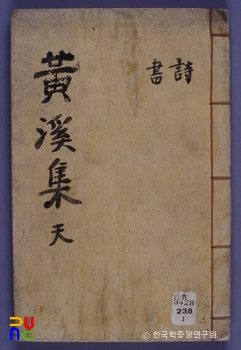 詩
書
黃溪集 天
3428
238
1
© 한국학중앙연구원